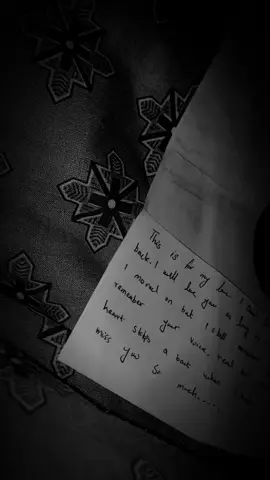 This is for my love. I
back. I will love you as long
I moved on but I still
remember your voice,
heart skips a beat when I
miss you so much.....